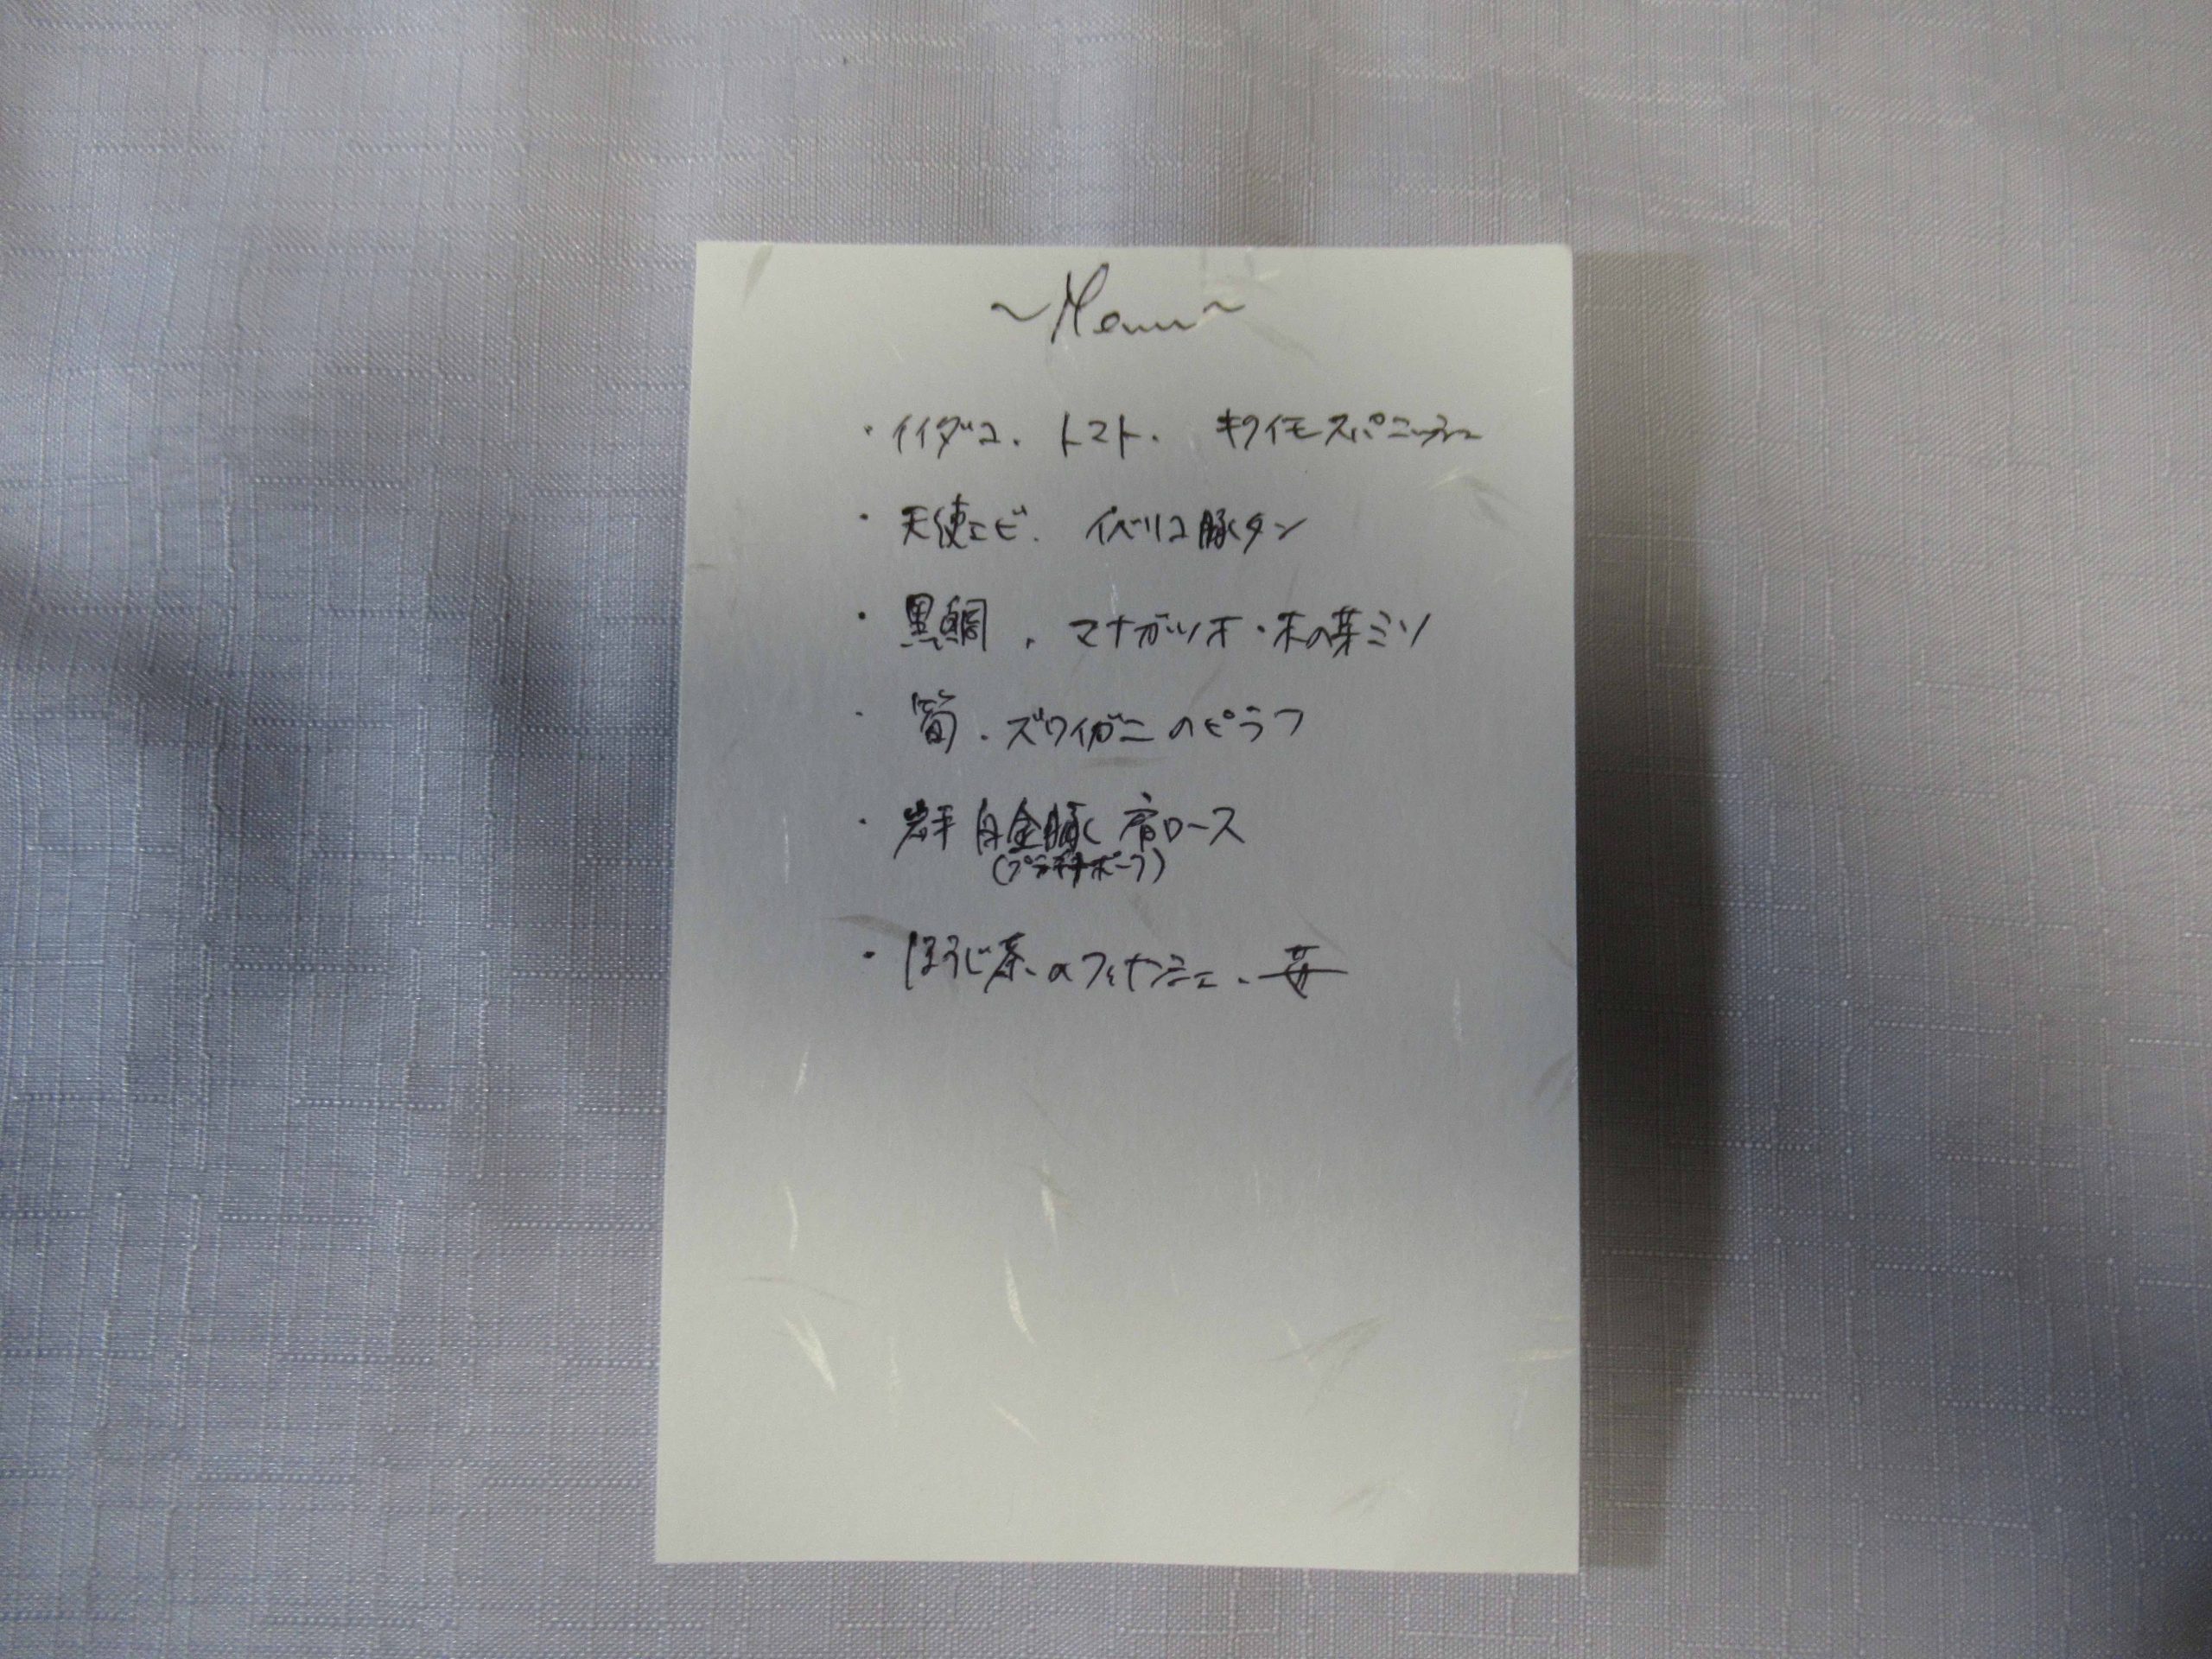 ～Menu～
・イイダコ、トマト、キクイモスパニッシュ
・天使エビ、イベリコ豚タン
・黒鯛、マナガツオ・木の芽ミソ
・筍、ズワイガニのピラフ
・岩手白金豚肩ロース
(プラチナポーク)
・ほうじ茶のフィナンシェ、苺